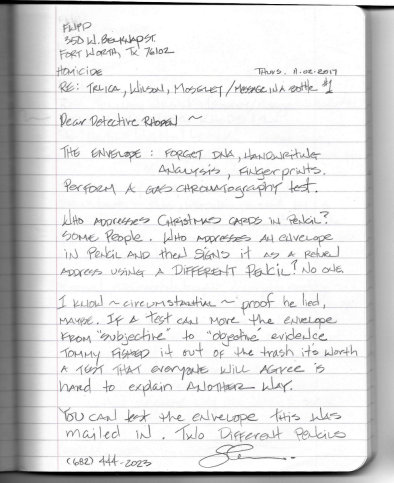 FWPD
350 W. BELKNAP ST.
FORT WORTH, TX 76102
HOMICIDE THURS. 11-02-2017
RE: TRLICA, WILSON, MOSELEY / MESSAGE IN A BOTTLE #1
Dear Detective ~
THE ENVELOPE : FORGET DNA, HANDWRITING
ANALYSIS, FINGERPRINTS.
PERFORM A GAS CHROMATOGRAPHY TEST.
WHO ADDRESSES CHRISTMAS CARDS IN PENCIL?
SOME PEOPLE. WHO ADDRESSES AN ENVELOPE
IN PENCIL AND then SIGNS it AS A RETURN
ADDRESS USING A DIFFERENT PENCIL? NO ONE.
I KNOW ~ circumstantial ~ proof he lied,
MAYBE. IF A TEST CAN MOVE the ENVELOPE
FROM "subjective" to "objective" evidence
TOMMY FISHED it out OF the TRASH it's WORTH
A TEST THAT everyone WILL AGREE is
HARD to EXPLAIN ANOTHER WAY.
YOU CAN test the ENVELOPE THIS WAS
mailed IN. TWO DIFFERENT PENCILS
(682) 444-2023